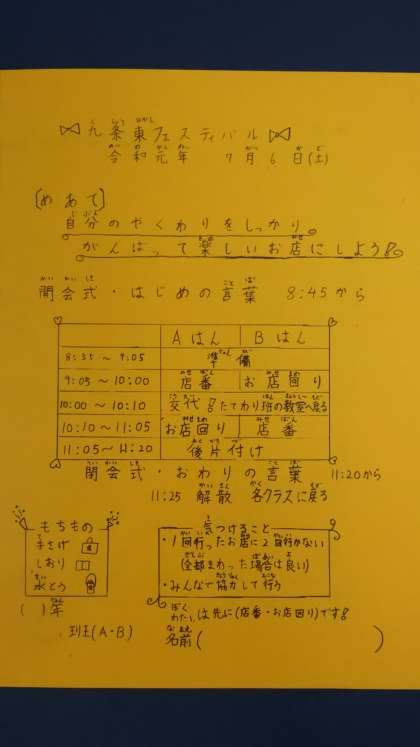 九条東フェスティバル
令和元年 7月6日(土)
(めあて)
自分のやくわりをしっかり
がんばって楽しいお店にしよう!
開会式・はじめの言葉 8:45から
Aはん Bはん
8:35〜9:05 準備
9:05〜10:00 店番 お店回り
10:00〜10:10 交代!たてわり班の教室へ戻る
10:10〜11:05 お店回り 店番
11:05〜11:20 後片付け
閉会式・おわりの言葉 11:20から
11:25 解散 各クラスに戻る
もちもの
手さげ
しおり
水とう
気つけること
・1回行ったお店に2回行かない
(全部まわった場合は良い)
・みんなで協力して行う
( )年
班(A・B)
ぼく
わたし
は先に(店番・お店回り)です!
名前( )